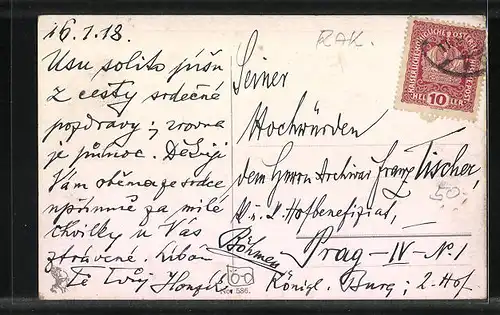 16.1.18.
Usu solito píšu
z cesty srdečné
pozdravy; zrovna
je půlnoc. Děkuji
Vám oběma ze srdce
upřímně za milé
chvilky u Vás
ztrávené. Líbá
Tě Tvůj Honzík
RAK.
KAISERLICHE KÖNIGLICHE ÖSTERR. POST
HELLER
10
Seiner
Hochwürden
dem Herrn Archivar Franz Tischer,
k. u. k. Hofbenefiziat,
50.-
Böhmen
Prag-IV-N. 1
Königl. Burg; 2. Hof
586.